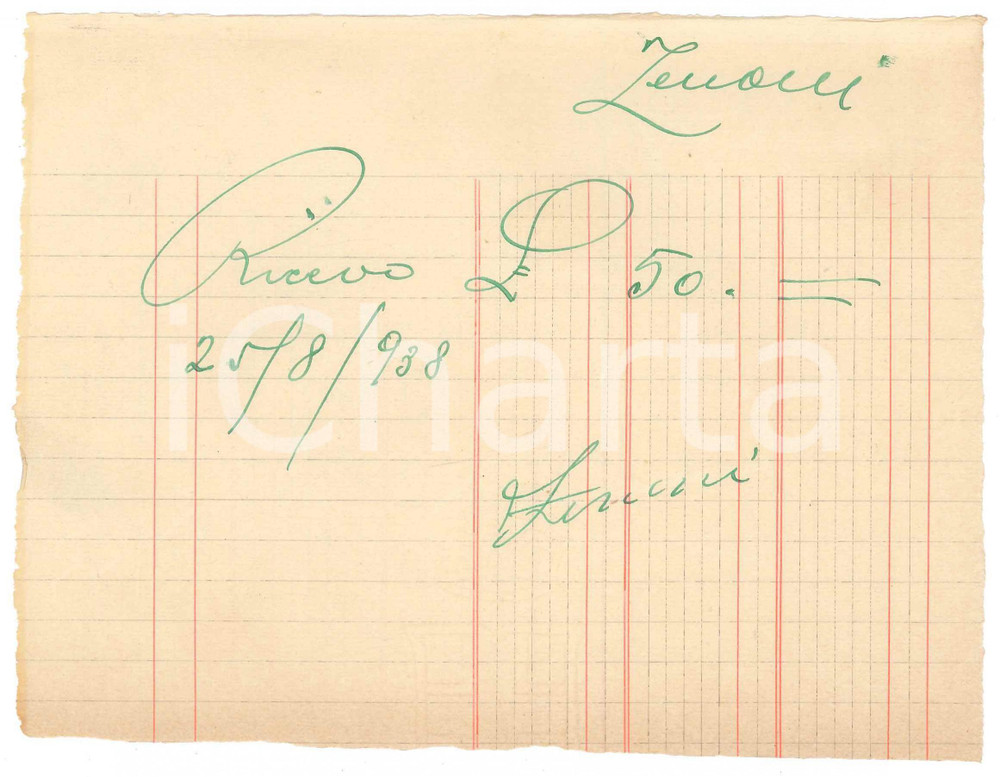 Zenoni
Ricevo £ 50. =
25/8/938
Zenoni
iCharta